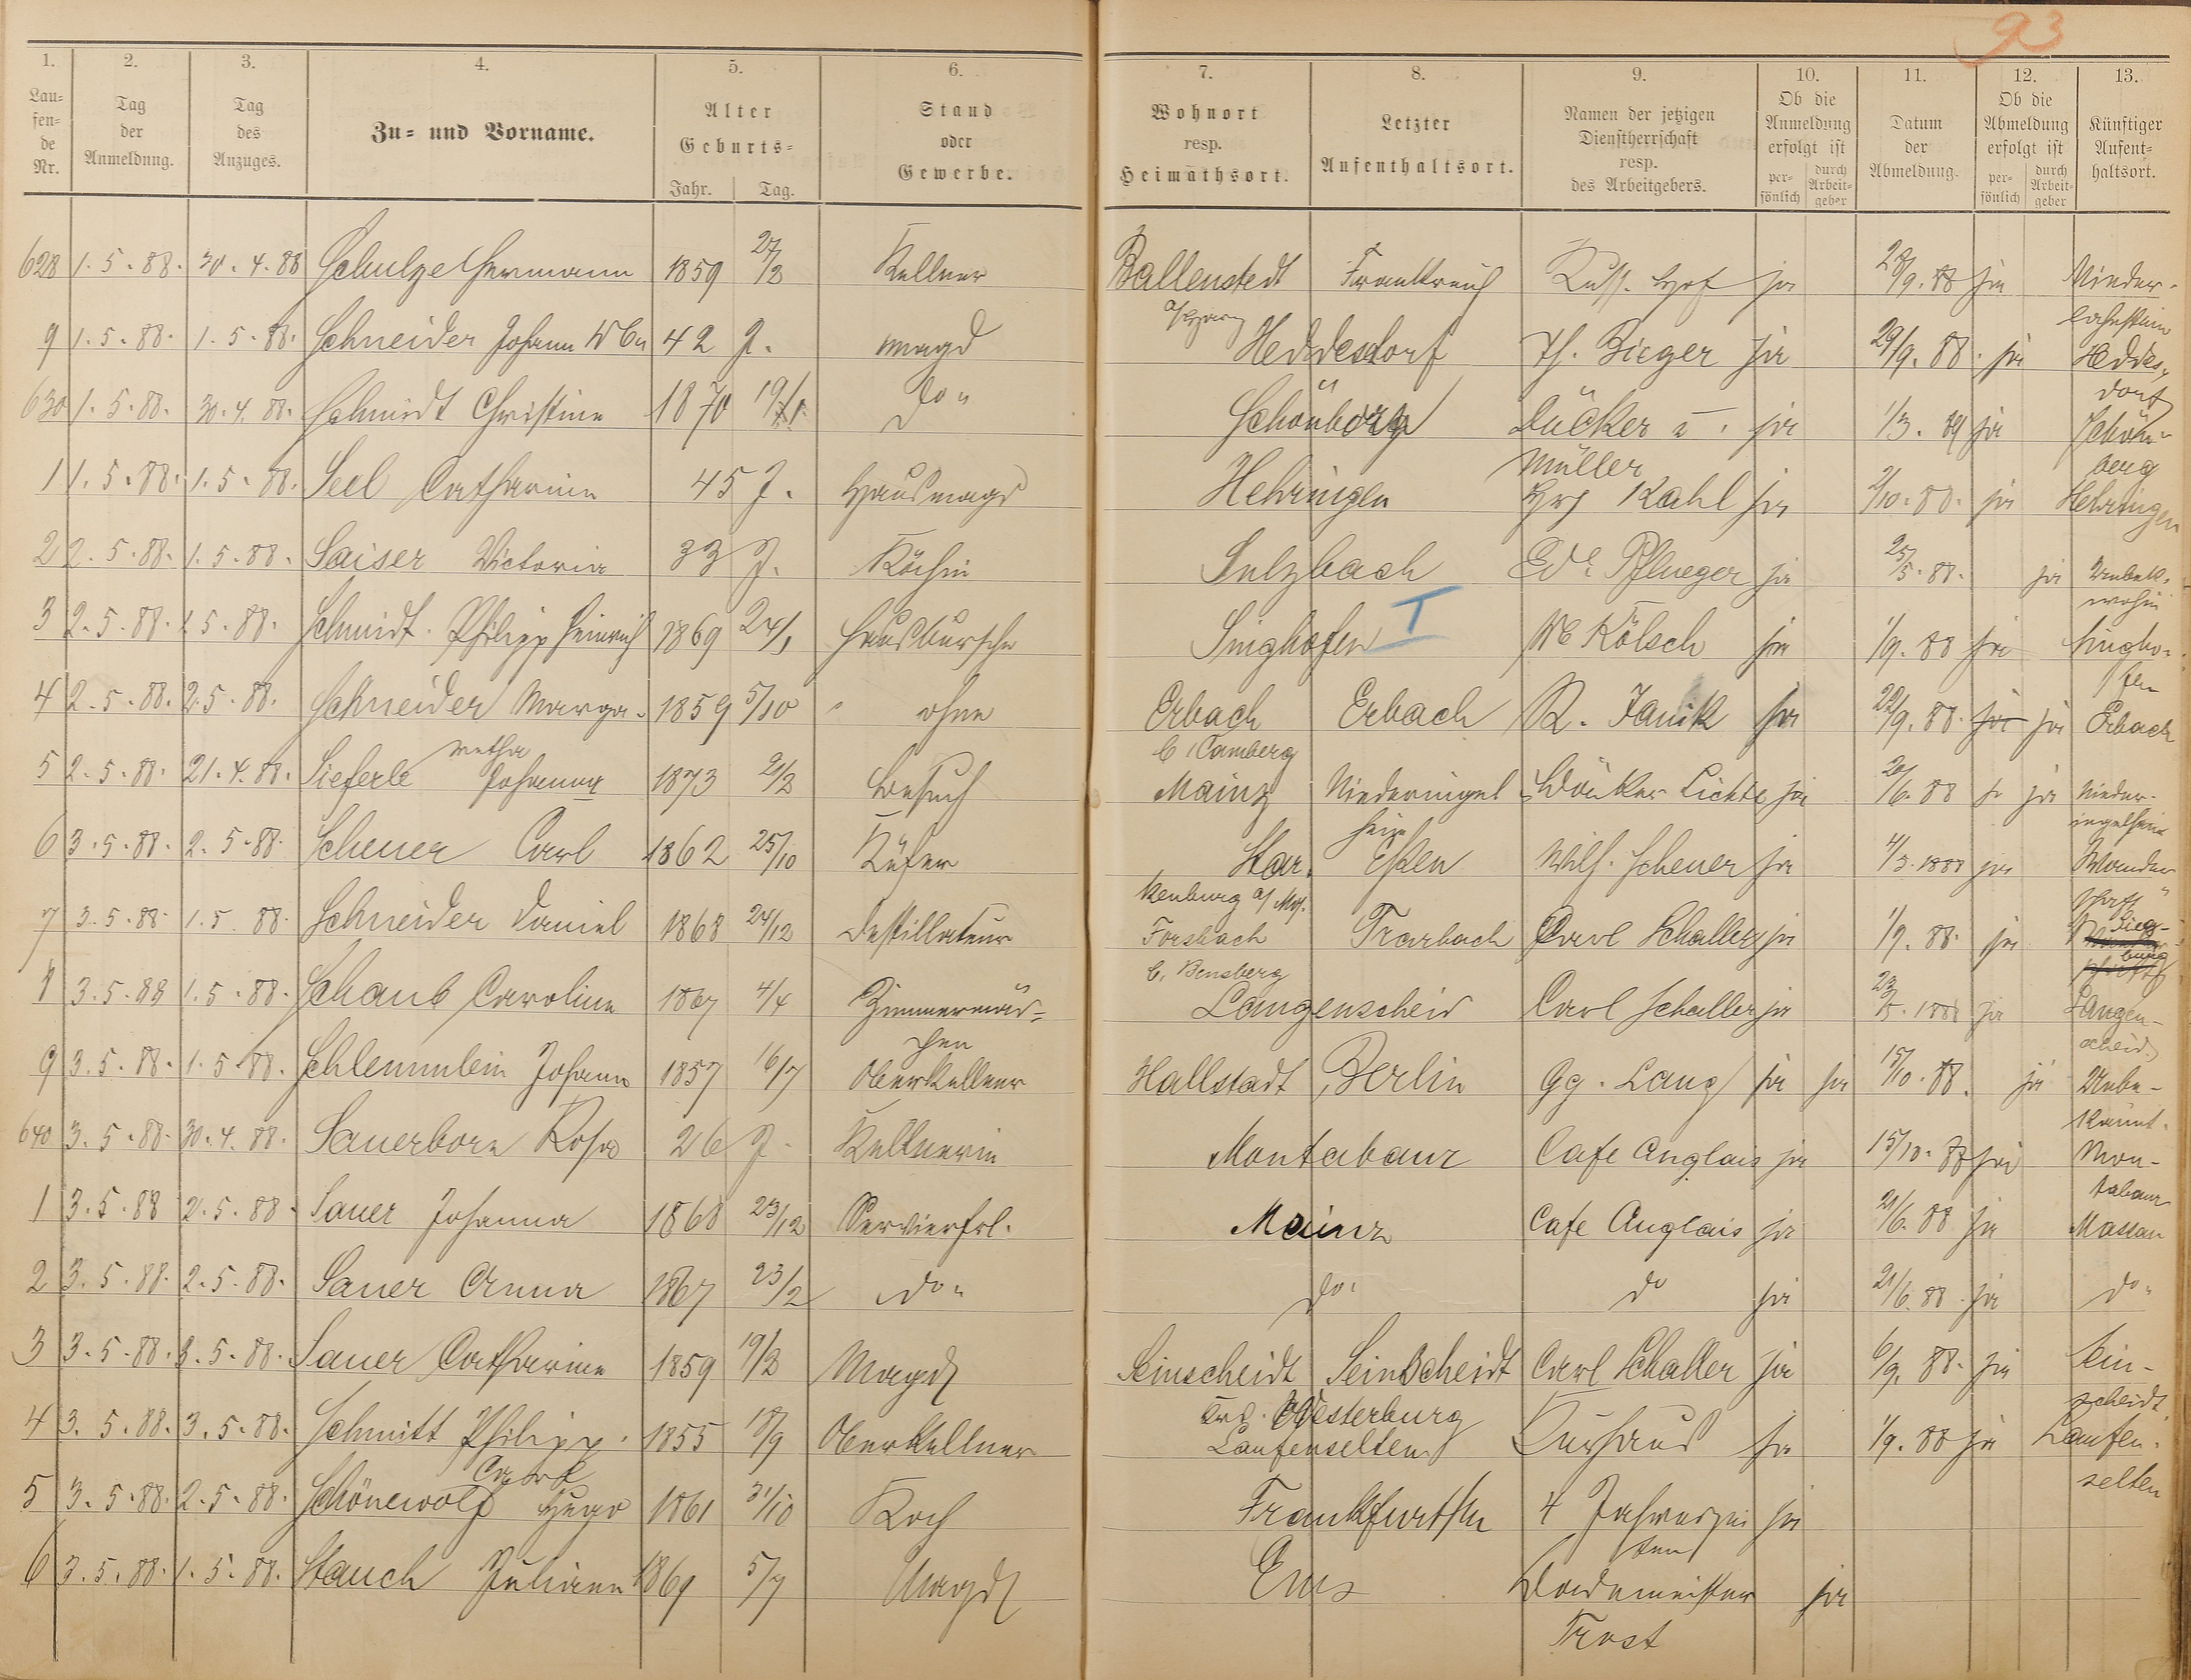 93
1. 2. 3. 4. 5. 6. 7. 8. 9. 10. 11. 12. 13.
Lau=
fen=
de
Nr.
Tag
der
Anmeldung.
Tag
des
Anzuges.
Zu= und Vorname.
Alter
Geburts=
Jahr. Tag.
Stand
oder
Gewerbe.
Wohnort
resp.
Heimathsort.
Letzter
Aufenthaltsort.
Namen der jetzigen
Dienstherrschaft
resp.
des Arbeitgebers.
Ob die
Anmeldung
erfolgt ist
per=
sönlich
durch
Arbeit=
geber
Datum
der
Abmeldung.
Ob die
Abmeldung
erfolgt ist
per=
sönlich
durch
Arbeit=
geber
Künftiger
Aufent=
haltsort.
628 1.5.88. 30.4.88 Schulze Hermann 1859 27/2 Kellner Ballenstedt Frankreich Russ. Hof ja 28/9.88 ja Nieder-
a/Harz lahnstein
9 1.5.88. 1.5.88. Schneider Johann 42 J. Magd Heddesdorf Th. Bieger ja 29/9.88. ja Heddes-
dorf
630 1.5.88. 30.4.88. Schmidt Christine 1870 19/1 do " Schönborn Dücker u. ja 1/3.89 ja Schön-
Müller berg
1 1.5.88. 1.5.88. Seel Catharina 45 J. Hausmagd Hehringen Kahl ja 2/10.88. ja Hehringen
2 2.5.88. 1.5.88. Saiser Victoria 33 J. Köchin Sulzbach Ed. Pflueger ja 25/5.88. ja Unbek.
wohin
3 2.5.88. 1.5.88. Schmidt Philipp Heinrich 1869 24/1 Hausbursche Singhofen I W Kölsch ja 1/9.88 ja Singho-
fen
4 2.5.88. 2.5.88. Schneider Marga- 1859 5/10 ohne Erbach Erbach R. Janik ja 22/9.88. ja ja Erbach
retha b/Camberg
5 2.5.88. 21.4.88. Sieferle Johanna 1873 2/2 Besuch Mainz Niederingel Lichte ja 20/6.88 ja Nieder-
heim ingelheim
6 3.5.88. 2.5.88. Scheuer Carl 1862 25/10 Küfer Star. Essen Wilh. Scheuer ja 4/5.1888 ja Wander
kenburg a/ schaft
7 3.5.88. 1.5.88. Schneider Daniel 1868 24/12 Destillateur Forsbach Trarbach Carl Schaller ja 1/9.88. ja Sieg-
b. Bensberg burg
8 3.5.88 1.5.88. Schaub Caroline 1867 4/4 Zimmermäd= Langenscheid Carl Schaller ja 23/5.1888 ja Langen-
chen scheid.
9 3.5.88. 1.5.88. Schlemmlein Johann 1857 16/7 Oberkellner Hallstadt Berlin Gg. Lang ja ja 15/10.88. ja Unbe-
kannt.
640 3.5.88. 30.4.88. Sauerborn Rosa 26 J. Kellnerin Montabaur Cafe Anglais ja 15/10.88 ja Mon-
tabaur
1 3.5.88 2.5.88. Sauer Johanna 1868 23/12 Servierfrl. Mainz Cafe Anglais ja 21/6.88 ja Nassau
2 3.5.88. 2.5.88. Sauer Anna 1867 23/2 do " do. do ja 21/6.88. ja do "
3 3.5.88. 3.5.88. Sauer Catharine 1859 19/2 Magd Seinscheidt Seinscheidt Carl Schaller ja 6/9.88. ja Sein-
Westerburg scheidt
4 3.5.88. 3.5.88. Schmitt Philipp. 1855 18/9 Oberkellner Laufenselten Kurhaus ja 1/9.88 ja Laufen.
Carl selten
5 3.5.88. 2.5.88. Schönewolf Hugo 1861 31/10 Koch Frankfurt/M 4 Jahreszei ja
ten
6 3.5.88. 1.5.88. Stauch Juliane 1869 5/7 Magd Ems Bademeister ja
Trost